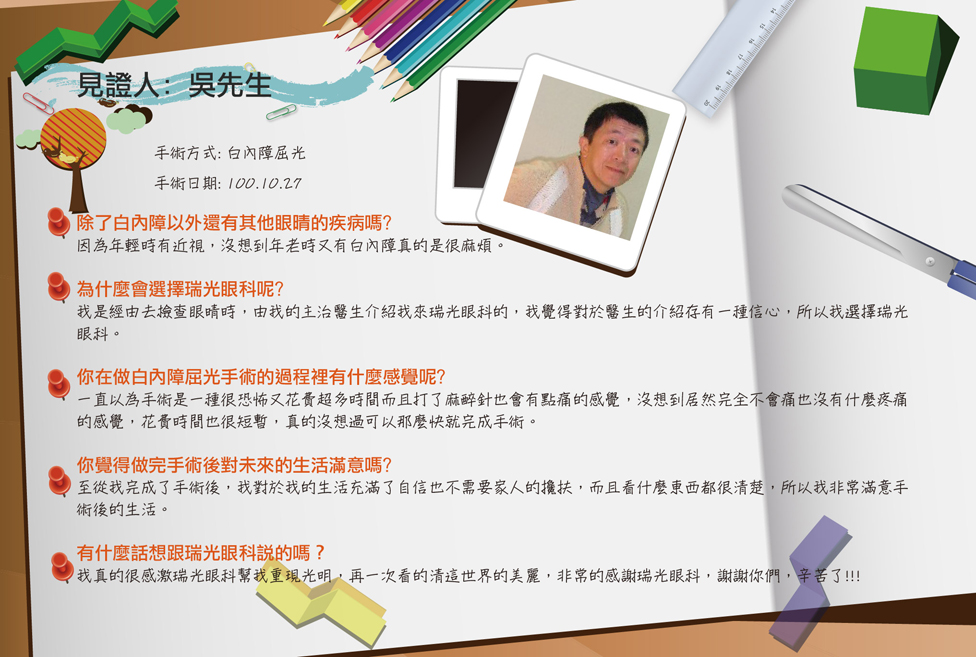 見證人：吳先生
手術方式: 白內障屈光
手術日期: 100.10.27
除了白內障以外還有其他眼睛的疾病嗎?
因為年輕時有近視，沒想到年老時又有白內障真的是很麻煩。
為什麼會選擇瑞光眼科呢?
我是經由去檢查眼睛時，由我的主治醫生介紹我來瑞光眼科的，我覺得對於醫生的介紹存有一種信心，所以我選擇瑞光
眼科。
你在做白內障屈光手術的過程裡有什麼感覺呢?
一直以為手術是一種很恐怖又花費超多時間而且打了麻醉針也會有點痛的感覺，沒想到居然完全不會痛也沒有什麼疼痛
的感覺，花費時間也很短暫，真的沒想過可以那麼快就完成手術。
你覺得做完手術後對未來的生活滿意嗎?
至從我完成了手術後，我對於我的生活充滿了自信也不需要家人的攙扶，而且看什麼東西都很清楚，所以我非常滿意手
術後的生活。
有什麼話想跟瑞光眼科説的嗎？
我真的很感激瑞光眼科幫我重現光明，再一次看的清這世界的美麗，非常的感謝瑞光眼科，謝謝你們，辛苦了!!!